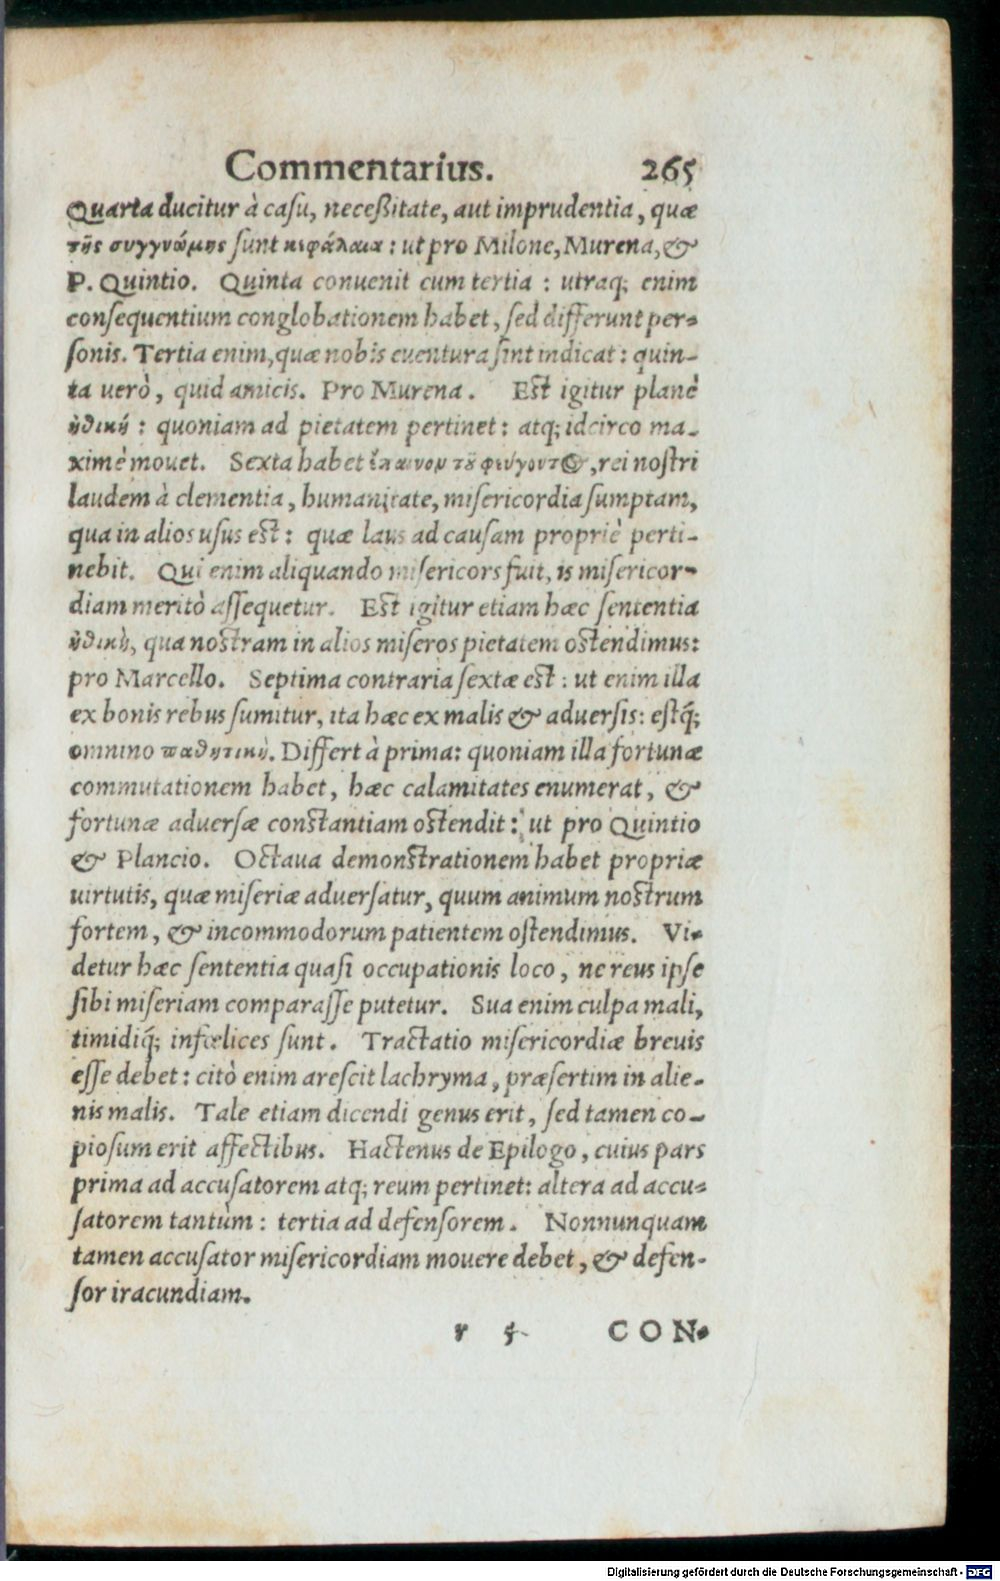 Commentarius. 265
Quarta ducitur à casu, neceßitate, aut imprudentia, quæ
τῆς συγγνώμης sunt κεφάλαια: ut pro Milone, Murena, &
P. Quintio. Quinta conuenit cum tertia : utraq; enim
consequentium conglobationem habet, sed differunt per-
sonis. Tertia enim, quæ nobis euentura sint indicat: quin-
ta uerò, quid amicis. Pro Murena. Est igitur planè
ἠθική : quoniam ad pietatem pertinet: atq; idcirco ma-
ximè mouet. Sexta habet ἔπαινον τοῦ φεύγοντος, rei nostri
laudem à clementia, humanitate, misericordia sumptam,
qua in alios usus est: quæ laus ad causam propriè perti-
nebit. Qui enim aliquando misericors fuit, is misericor-
diam meritò assequetur. Est igitur etiam hæc sententia
ἠθικὴ, qua nostram in alios miseros pietatem ostendimus:
pro Marcello. Septima contraria sextæ est: ut enim illa
ex bonis rebus sumitur, ita hæc ex malis & aduersis: estq́;
omnino παθητικὴ. Differt à prima: quoniam illa fortunæ
commutationem habet, hæc calamitates enumerat, &
fortunæ aduersæ constantiam ostendit: ut pro Quintio
& Plancio. Octaua demonstrationem habet propriæ
uirtutis, quæ miseriæ aduersatur, quum animum nostrum
fortem, & incommodorum patientem ostendimus. Vi-
detur hæc sententia quasi occupationis loco, ne reus ipse
sibi miseriam comparasse putetur. Sua enim culpa mali,
timidiq́; infœlices sunt. Tractatio misericordiæ breuis
esse debet: citò enim arescit lachryma, præsertim in alie-
nis malis. Tale etiam dicendi genus erit, sed tamen co-
piosum erit affectibus. Hactenus de Epilogo, cuius pars
prima ad accusatorem atq; reum pertinet: altera ad accu-
satorem tantùm: tertia ad defensorem. Nonnunquam
tamen accusator misericordiam mouere debet, & defen-
sor iracundiam.
r 5 CON-
Digitalisierung gefördert durch die Deutsche Forschungsgemeinschaft - DFG